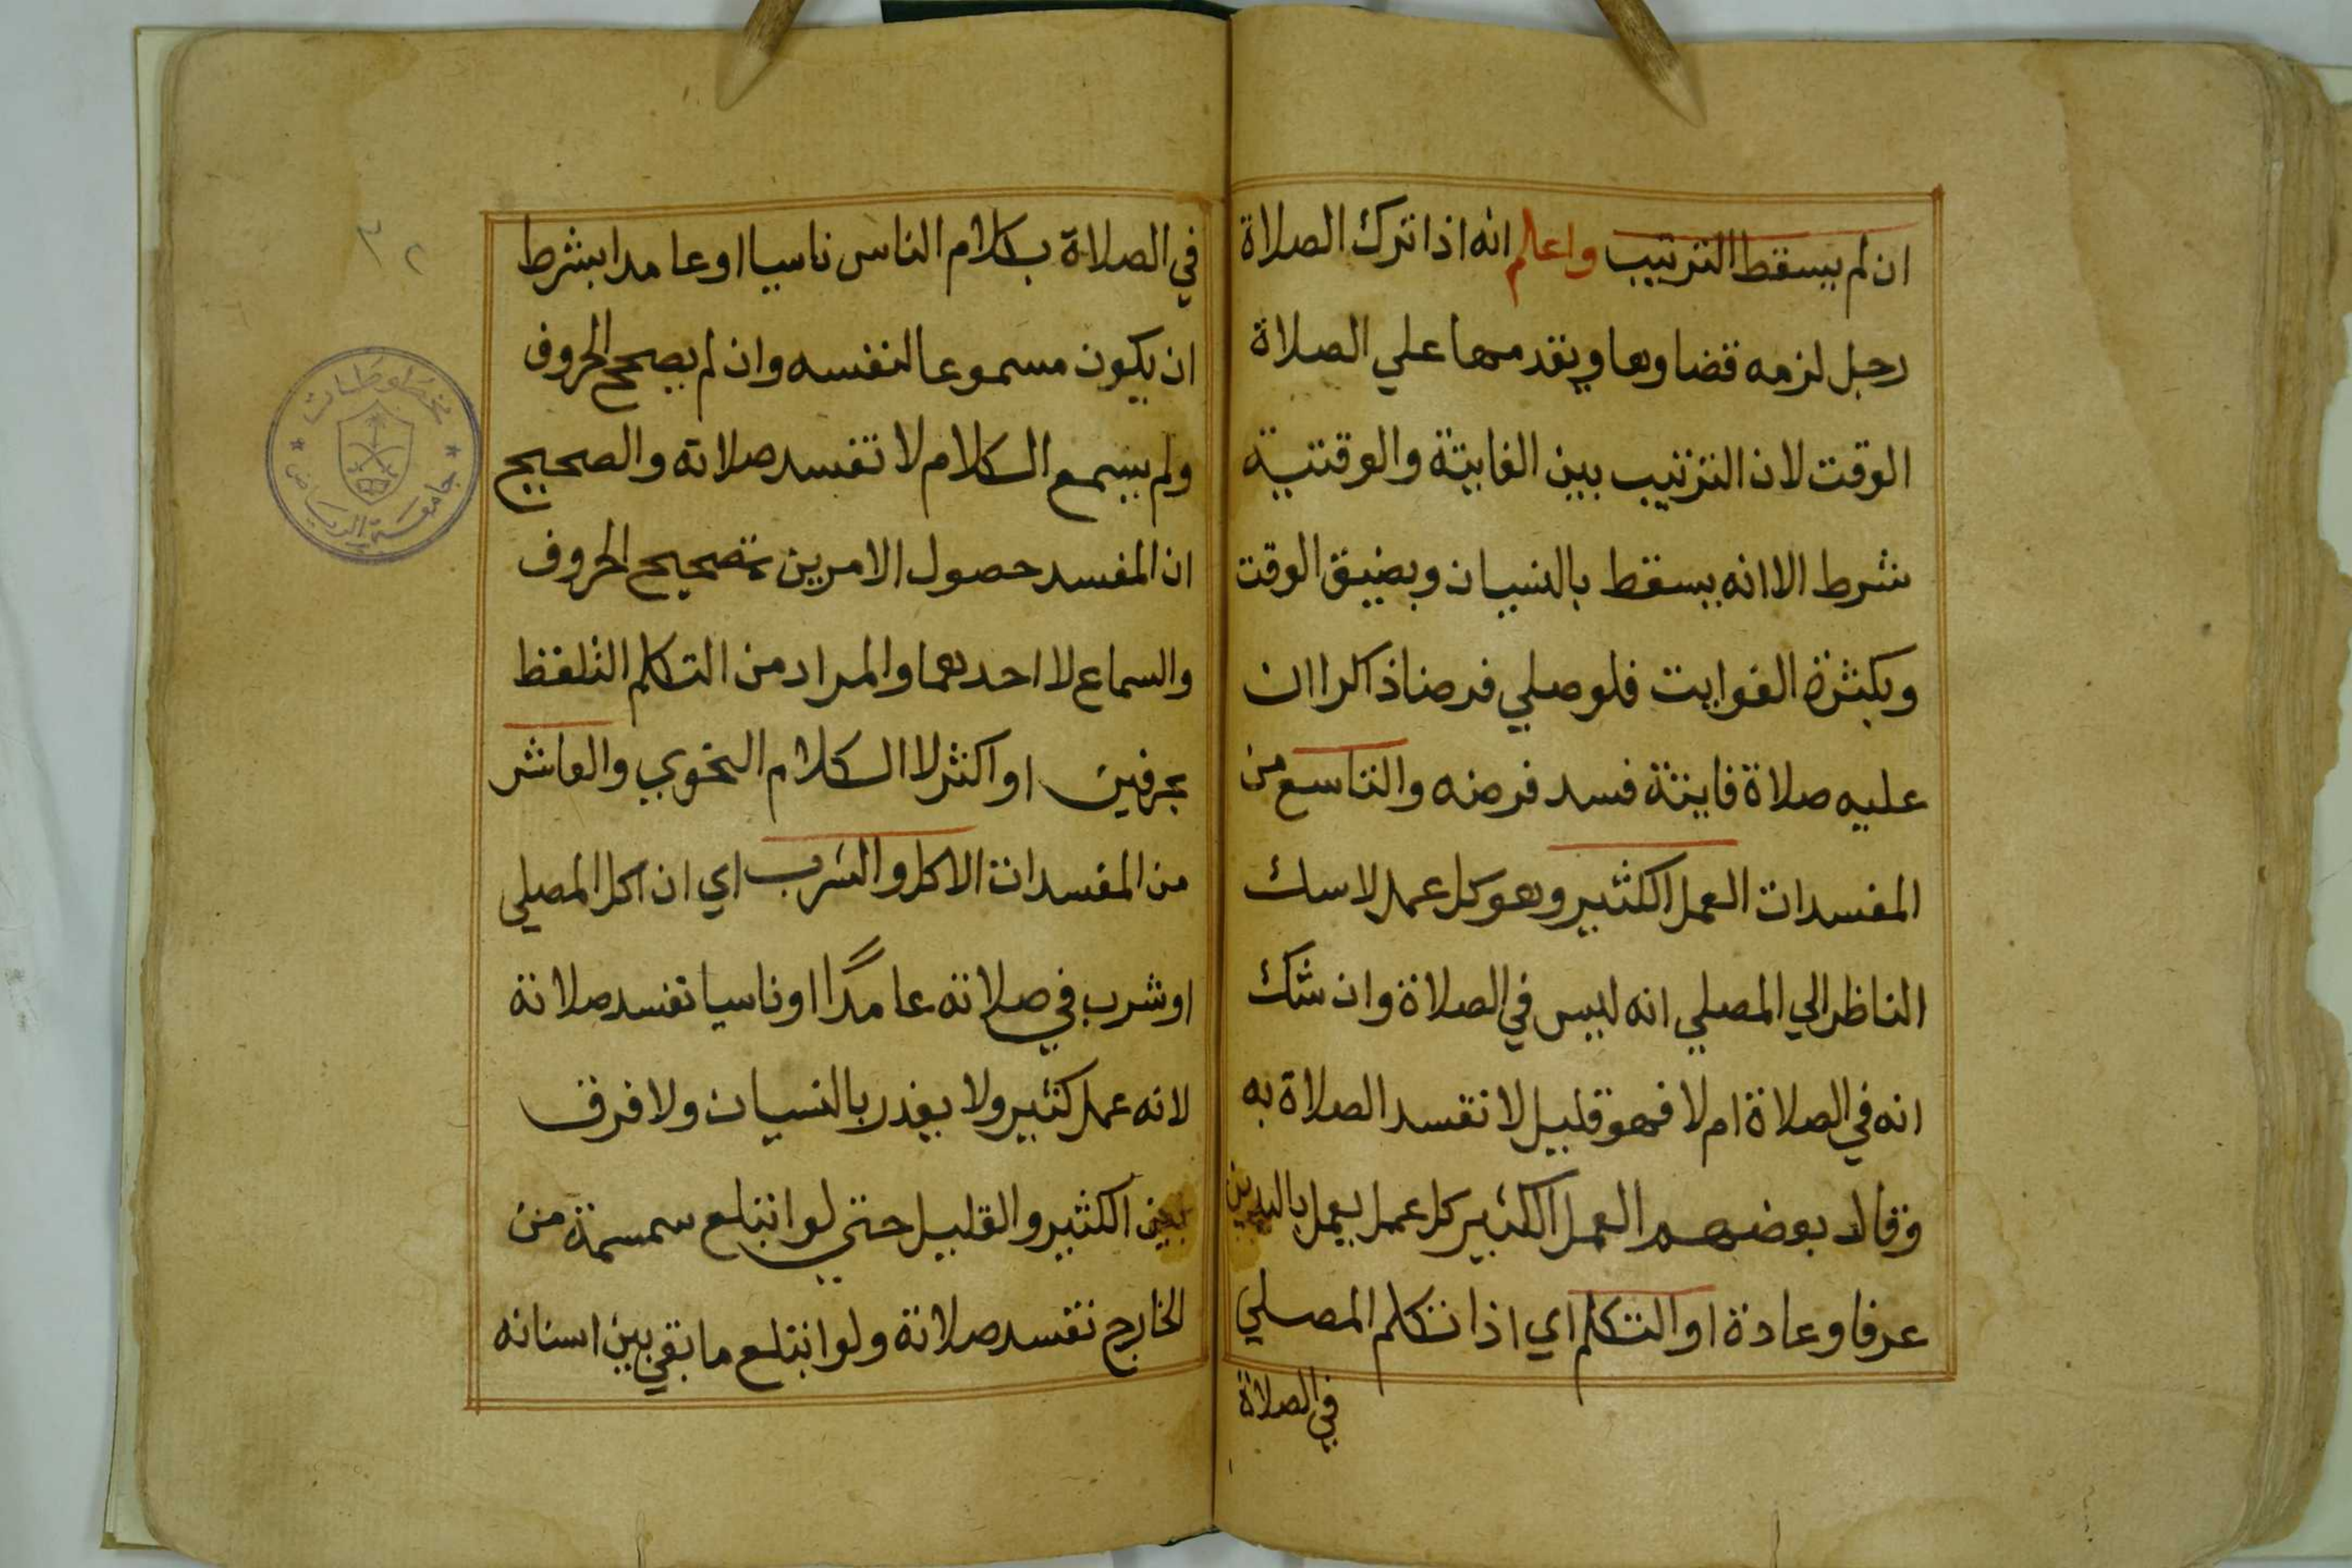 ان لم يسقط الترتيب واعلم انه اذا ترك الصلاة
رجل لزمه قضاوها ويقدمها علي الصلاة
الوقت لان الترتيب بين الفايتة والوقتية
شرط الا انه يسقط بالنسيان وبضيق الوقت
وبكثرة الفوايت فلو صلي فرضا ذاكرا ان
عليه صلاة فايتة فسد فرضه والتاسع من
المفسدات العمل الكثير وهو كل عمل لا سك
الناظر الي المصلي انه ليس في الصلاة وان شك
انه في الصلاة ام لا فهو قليل لا تفسد الصلاة به
وقال بعضهم العمل الكثير كل عمل يعمل باليدين
عرفا وعادة او التكلم اي اذا تكلم المصلي
في الصلاة
في الصلاة بكلام الناس ناسيا او عامدا بشرط
ان يكون مسموعا لنفسه وان لم يصحح الحروف
ولم يسمع الكلام لا تفسد صلاته والصحيح
ان المفسد حصول الامرين تصحيح الحروف
والسماع لا احدهما والمراد من التكلم التلفظ
بحرفين او اكثر لا الكلام النحوي والعاشر
من المفسدات الاكل والشرب اي ان اكل المصلي
او شرب في صلاته عامدًا او ناسيا تفسد صلاته
لانه عمل كثير ولا يعذر بالنسيان ولا فرق
بين الكثير والقليل حتي لو ابتلع سمسمة من
الخارج تفسد صلاته ولو ابتلع ما بقي بين اسنانه
٣٢
مخطوطات
جامعة الرياض